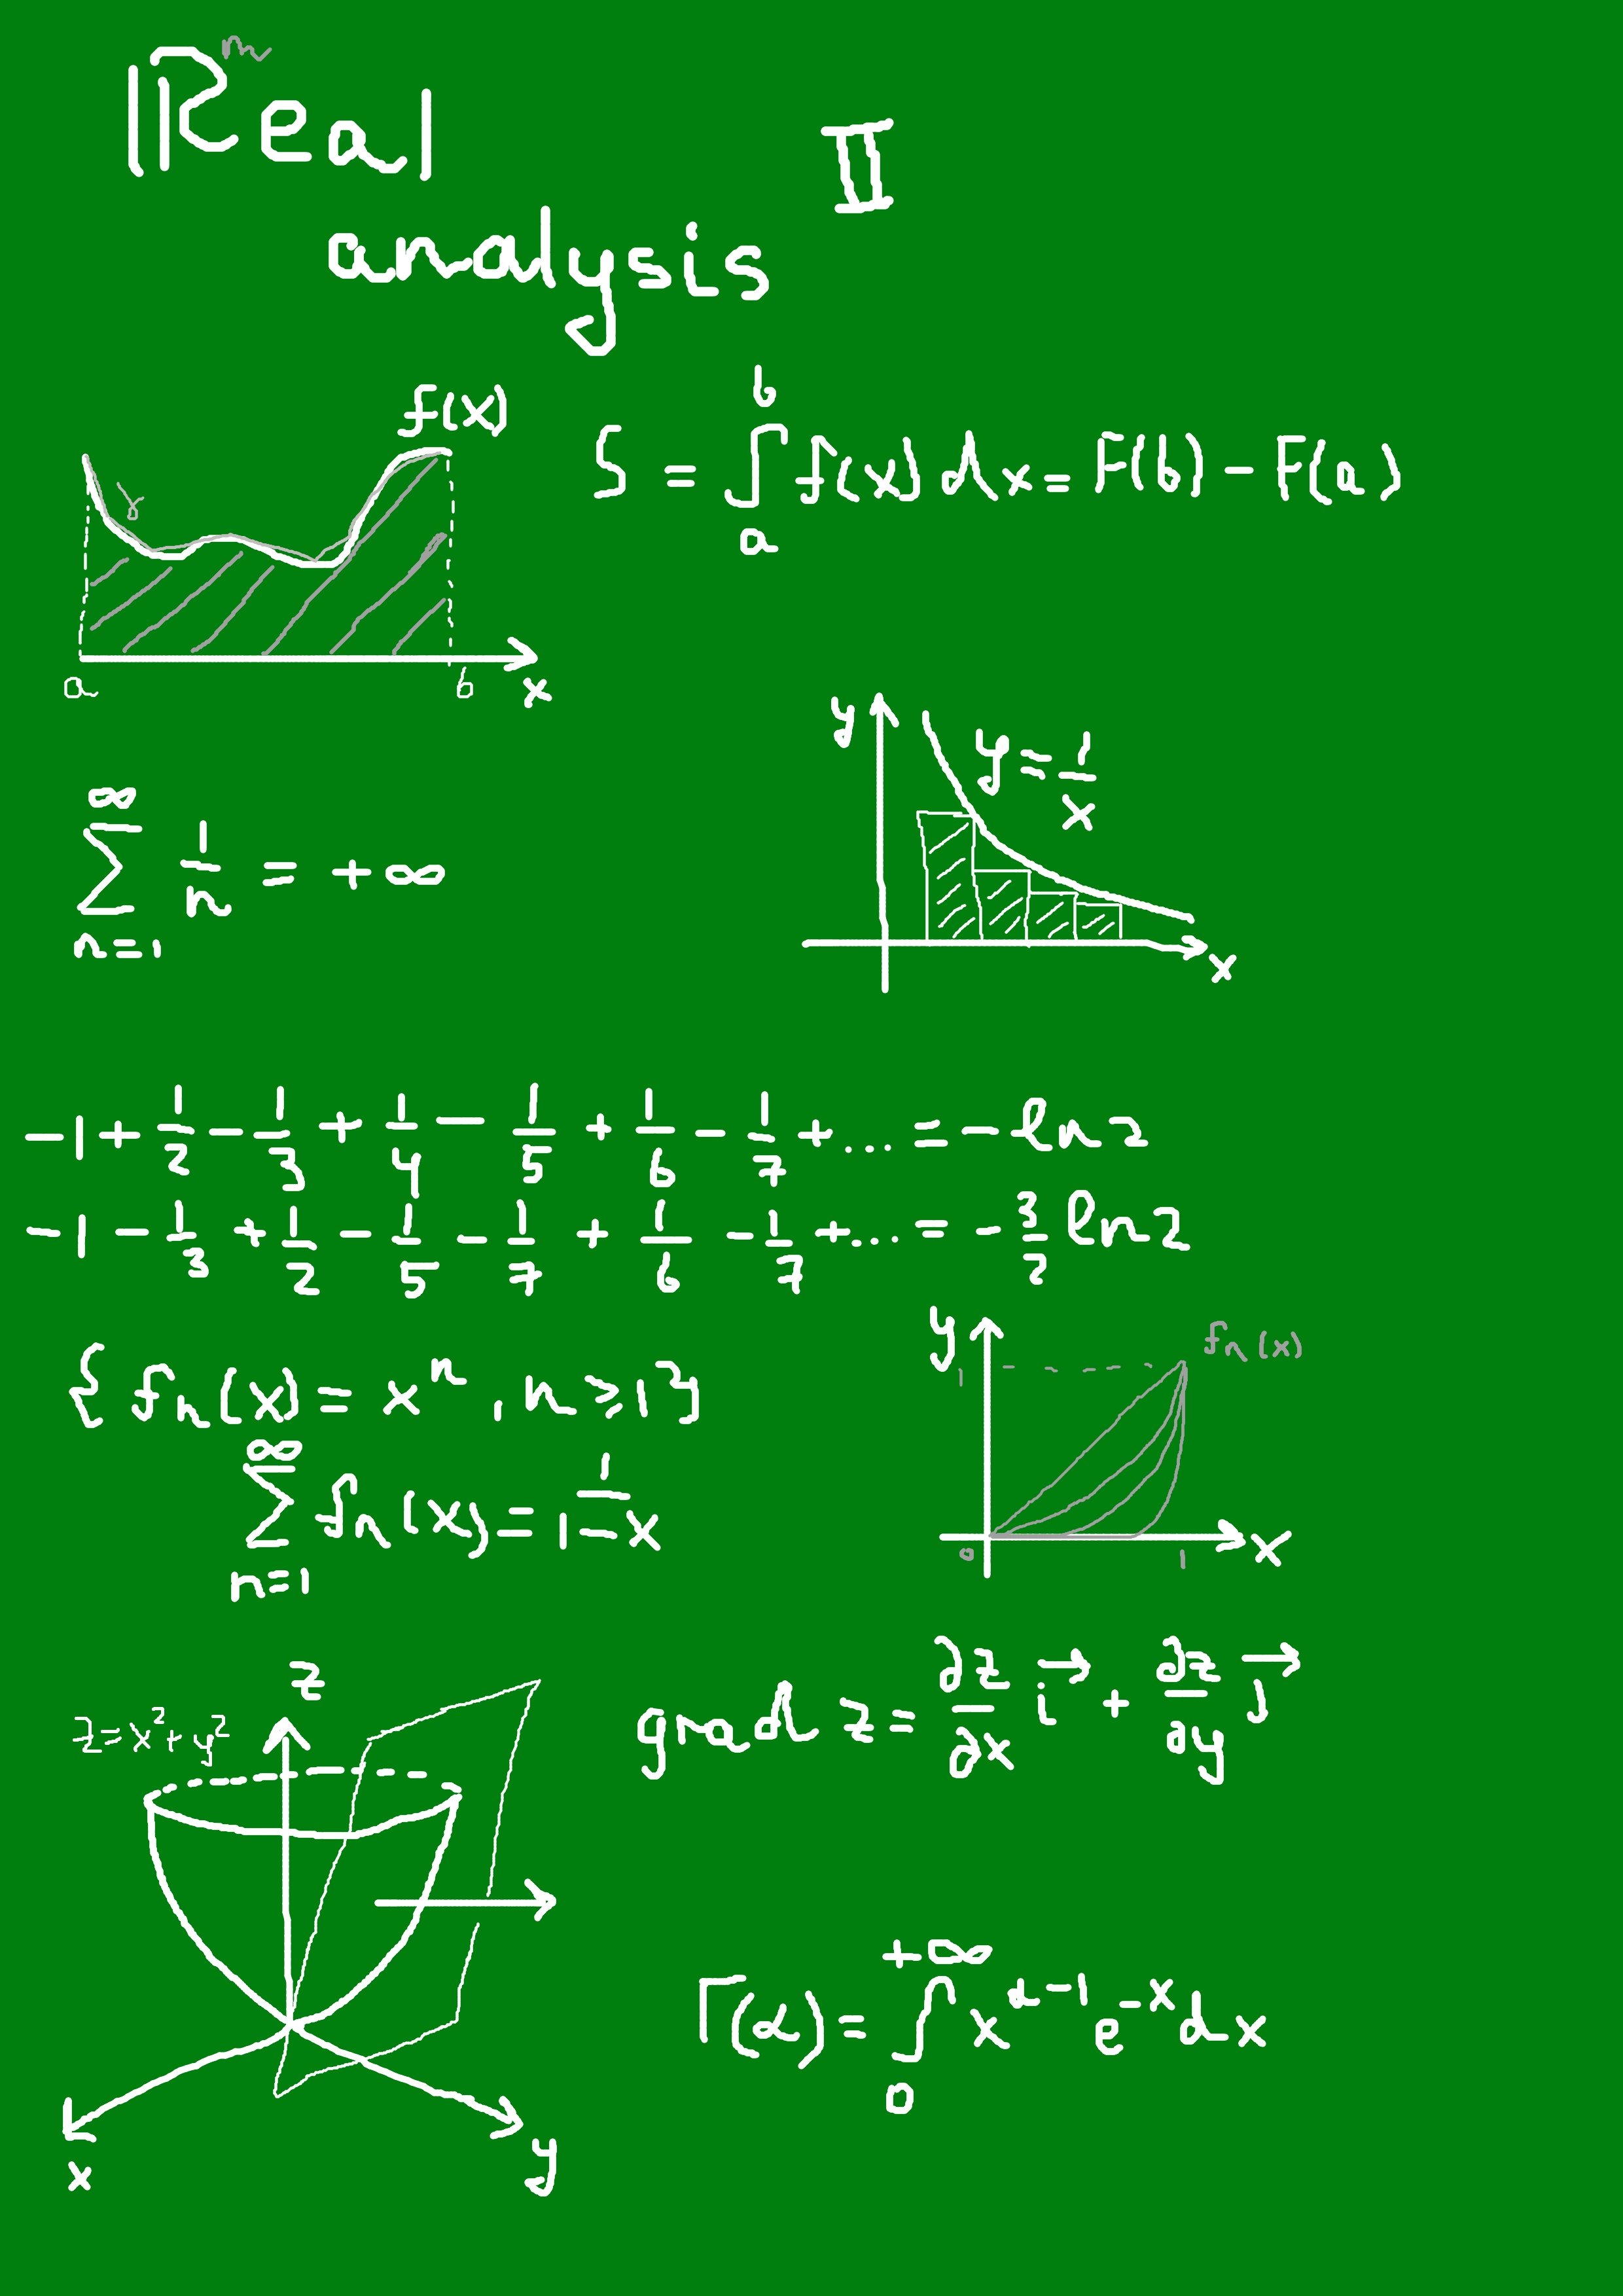 ℝeal m
II
analysis
f(x)
γ
a b x
S = ∫_a^b f(x) dx = F(b) - F(a)
y
y = 1/x
x
∑_{n=1}^{∞} 1/n = +∞
-1 + 1/2 - 1/3 + 1/4 - 1/5 + 1/6 - 1/7 + ... = - ln 2
-1 - 1/3 + 1/2 - 1/5 - 1/7 + 1/6 - 1/7 + ... = - 3/2 ln 2
{ fn(x) = x^n , n ≥ 1 }
∑_{n=1}^{∞} fn(x) = 1/(1-x)
y
1
fn(x)
0 1 x
z
z = x² + y²
x
y
grad z = ∂z/∂x i⃗ + ∂z/∂y j⃗
Γ(α) = ∫_0^{+∞} x^{α-1} e^{-x} dx